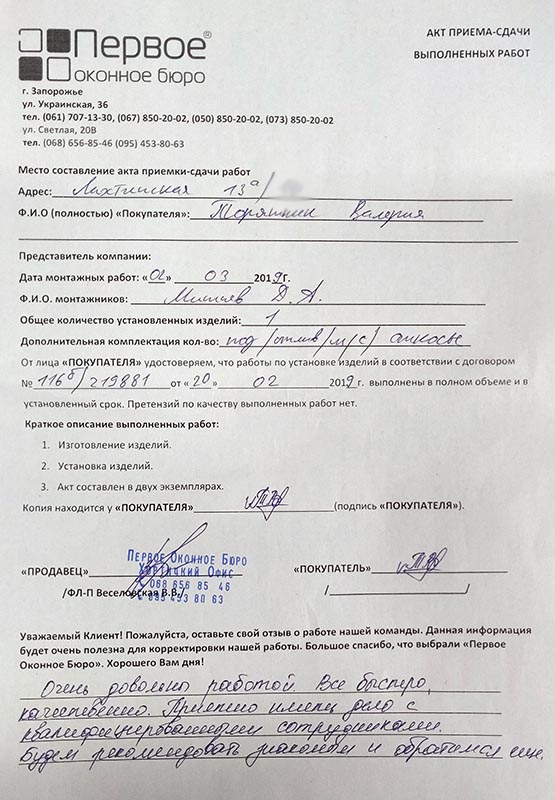 Первое®
оконное бюро
АКТ ПРИЕМА-СДАЧИ
ВЫПОЛНЕННЫХ РАБОТ
г. Запорожье
ул. Украинская, 36
тел. (061) 707-13-30, (067) 850-20-02, (050) 850-20-02, (073) 850-20-02
ул. Светлая, 20В
тел. (068) 656-85-46 (095) 453-80-63
Место составление акта приемки-сдачи работ
Адрес: 13а/
Ф.И.О (полностью) «Покупателя»: Валерия
Представитель компании:
Дата монтажных работ: «02» 03 2019г.
Ф.И.О. монтажников: Д.А.
Общее количество установленных изделий: 1
Дополнительная комплектация кол-во: под/отлив/м/с/ откосы
От лица «ПОКУПАТЕЛЯ» удостоверяем, что работы по установке изделий в соответствии с договором
№ 116б/219881 от «20» 02 2019г. выполнены в полном объеме и в
установленный срок. Претензий по качеству выполненных работ нет.
Краткое описание выполненных работ:
1. Изготовление изделий.
2. Установка изделий.
3. Акт составлен в двух экземплярах.
Копия находится у «ПОКУПАТЕЛЯ» (подпись «ПОКУПАТЕЛЯ»).
Первое Оконное Бюро
Хортицкий Офис
068 656 85 46
095 453 80 63
«ПРОДАВЕЦ» «ПОКУПАТЕЛЬ»
/ФЛ-П Веселовская В.В./ / /
Уважаемый Клиент! Пожалуйста, оставьте свой отзыв о работе нашей команды. Данная информация
будет очень полезна для корректировки нашей работы. Большое спасибо, что выбрали «Первое
Оконное Бюро». Хорошего Вам дня!
Очень довольно работой. Все быстро,
качественно. Приятно имець дело с
квалифицированными сотрудниками.
Будем рекомендовать знакомым и обратимся еще.